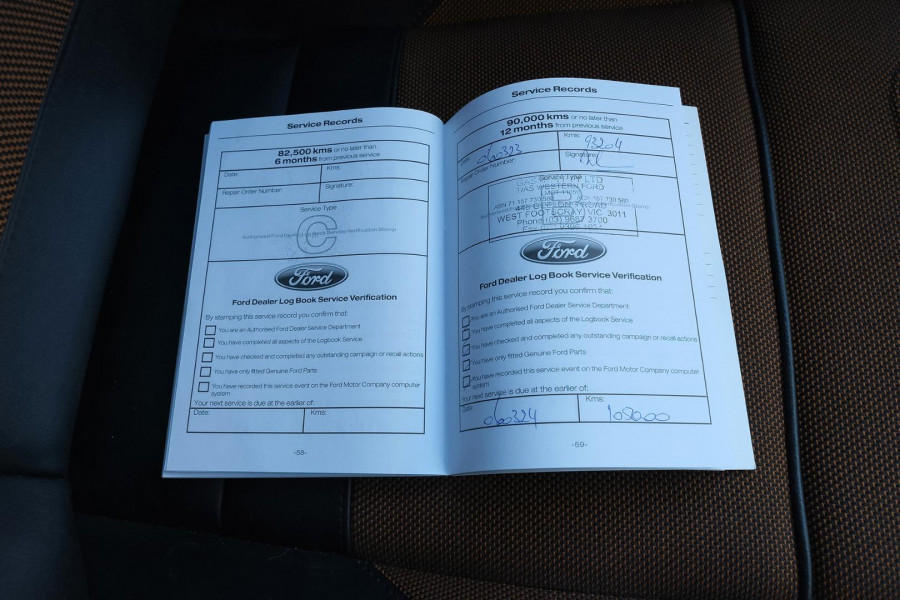 Service Records
82,500 kms or no later than
6 months from previous service
Date:
Kms:
Repair Order Number:
Signature:
Service Type
C
Ford
Ford Dealer Log Book Service Verification
By stamping this service record you confirm that:
You are an Authorised Ford Dealer Service Department
You have completed all aspects of the Logbook Service
You have checked and completed any outstanding campaign or recall actions
You have only fitted Genuine Ford Parts
You have recorded this service event on the Ford Motor Company computer
system
Your next service is due at the earlier of:
Date:
Kms:
-58-
Service Records
90,000 kms or no later than
12 months from previous service
Date:
Kms: 93204
Repair Order Number:
Signature:
Service Type
WESTERN FORD
WEST FOOTSCRAY VIC 3011
Phone (03) 9687 3700
Ford
Ford Dealer Log Book Service Verification
By stamping this service record you confirm that:
You are an Authorised Ford Dealer Service Department
You have completed all aspects of the Logbook Service
You have checked and completed any outstanding campaign or recall actions
You have only fitted Genuine Ford Parts
You have recorded this service event on the Ford Motor Company computer
system
Your next service is due at the earlier of:
Date:
Kms:
-59-